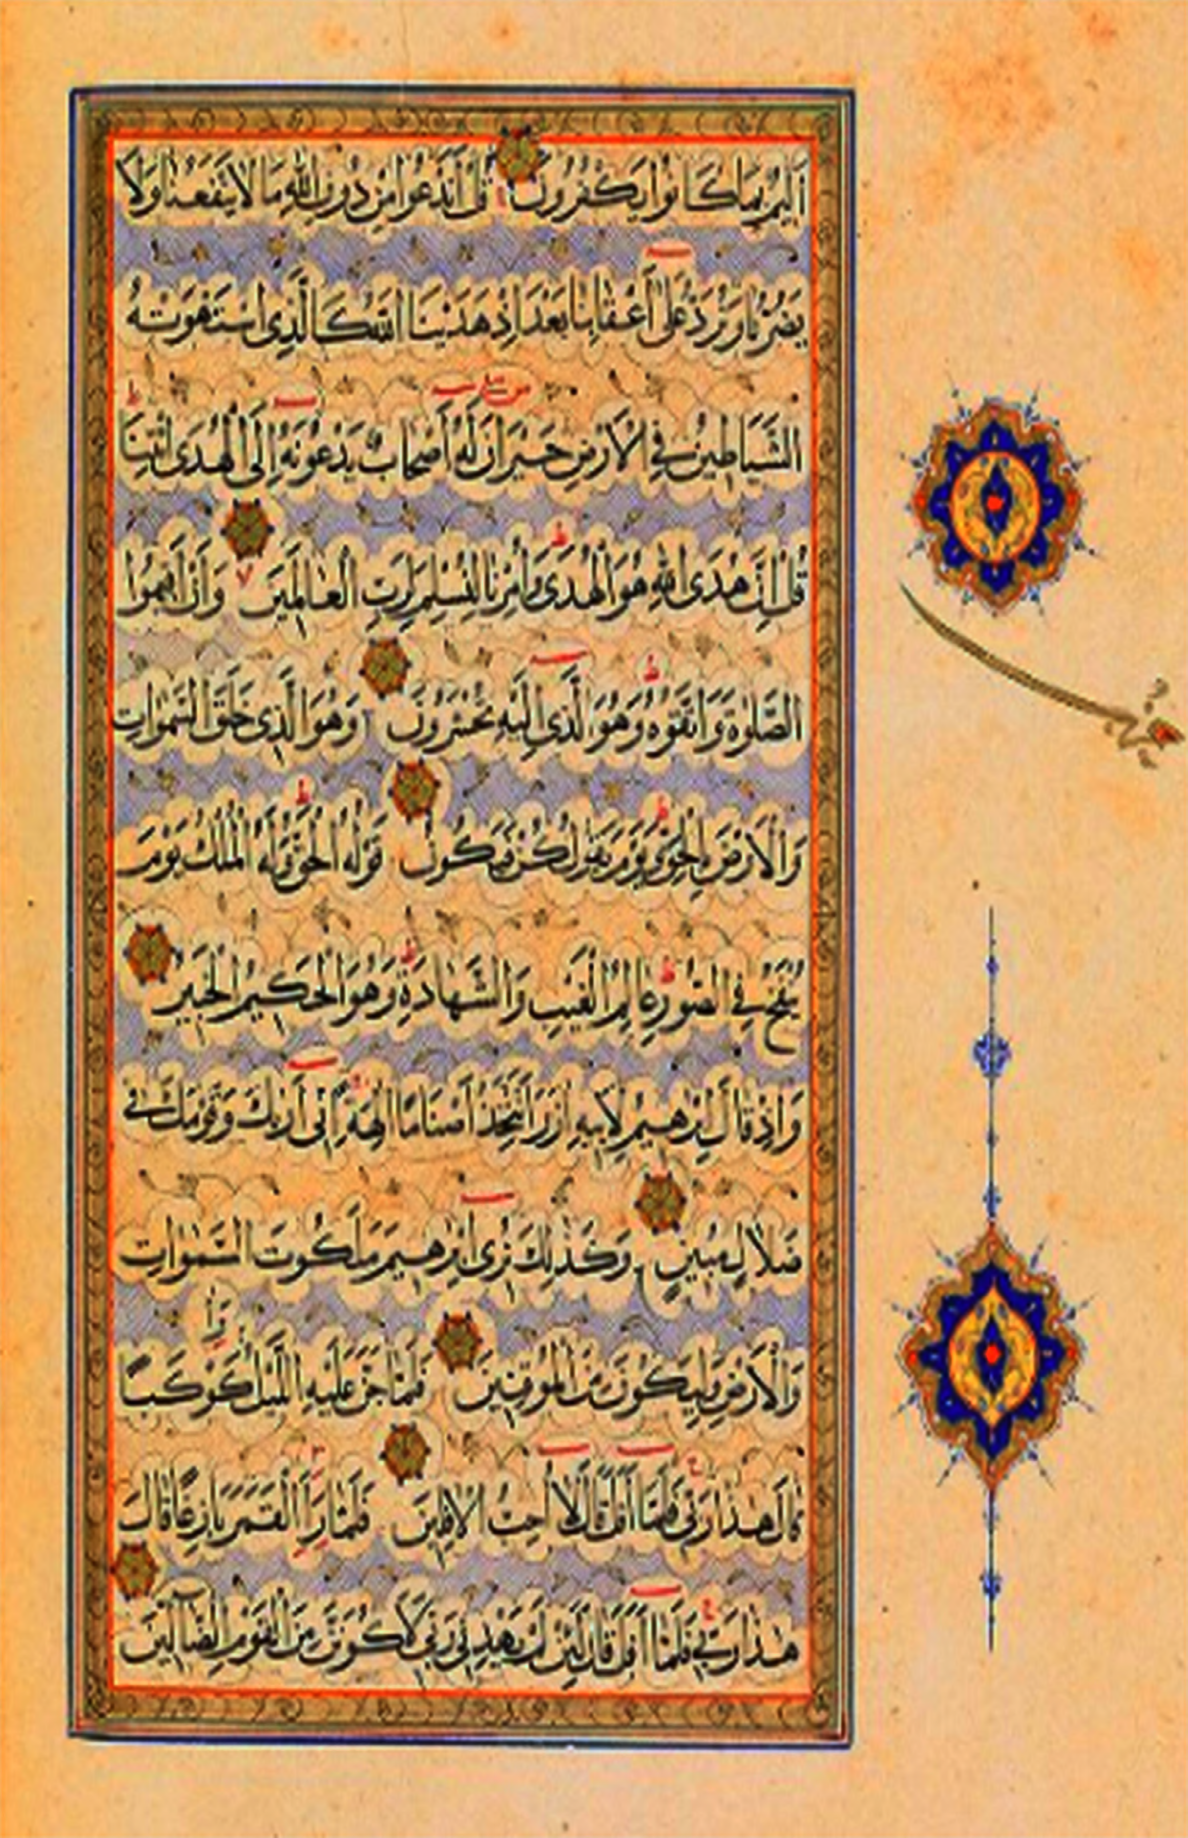 اَلِيمٌ بِمَا كَانُوا يَكْفُرُونَ قُلْ اَنَدْعُوا مِنْ دُونِ اللّٰهِ مَا لَا يَنْفَعُنَا وَلَا
يَضُرُّنَا وَنُرَدُّ عَلٰى اَعْقَابِنَا بَعْدَ اِذْ هَدٰينَا اللّٰهُ كَالَّذِى اسْتَهْوَتْهُ
الشَّيَاطِينُ فِى الْاَرْضِ حَيْرَانَ لَهُ اَصْحَابٌ يَدْعُونَهُ اِلَى الْهُدَى ائْتِنَا
قُلْ اِنَّ هُدَى اللّٰهِ هُوَ الْهُدٰى وَاُمِرْنَا لِنُسْلِمَ لِرَبِّ الْعَالَمِينَ وَاَنْ اَقِيمُوا
الصَّلٰوةَ وَاتَّقُوهُ وَهُوَ الَّذِى اِلَيْهِ تُحْشَرُونَ وَهُوَ الَّذِى خَلَقَ السَّمٰوَاتِ
وَالْاَرْضَ بِالْحَقِّ وَيَوْمَ يَقُولُ كُنْ فَيَكُونُ قَوْلُهُ الْحَقُّ وَلَهُ الْمُلْكُ يَوْمَ
يُنْفَخُ فِى الصُّورِ عَالِمُ الْغَيْبِ وَالشَّهَادَةِ وَهُوَ الْحَكِيمُ الْخَبِيرُ
وَاِذْ قَالَ اِبْرٰهِيمُ لِاَبِيهِ اٰزَرَ اَتَتَّخِذُ اَصْنَامًا اٰلِهَةً اِنِّى اَرٰيكَ وَقَوْمَكَ فِى
ضَلَالٍ مُبِينٍ وَكَذٰلِكَ نُرِى اِبْرٰهِيمَ مَلَكُوتَ السَّمٰوَاتِ
وَالْاَرْضِ وَلِيَكُونَ مِنَ الْمُوقِنِينَ فَلَمَّا جَنَّ عَلَيْهِ الَّيْلُ رَاٰ كَوْكَبًا
قَالَ هٰذَا رَبِّى فَلَمَّا اَفَلَ قَالَ لَا اُحِبُّ الْاٰفِلِينَ فَلَمَّا رَاَ الْقَمَرَ بَازِغًا قَالَ
هٰذَا رَبِّى فَلَمَّا اَفَلَ قَالَ لَئِنْ لَمْ يَهْدِنِى رَبِّى لَاَكُونَنَّ مِنَ الْقَوْمِ الضَّالِّينَ